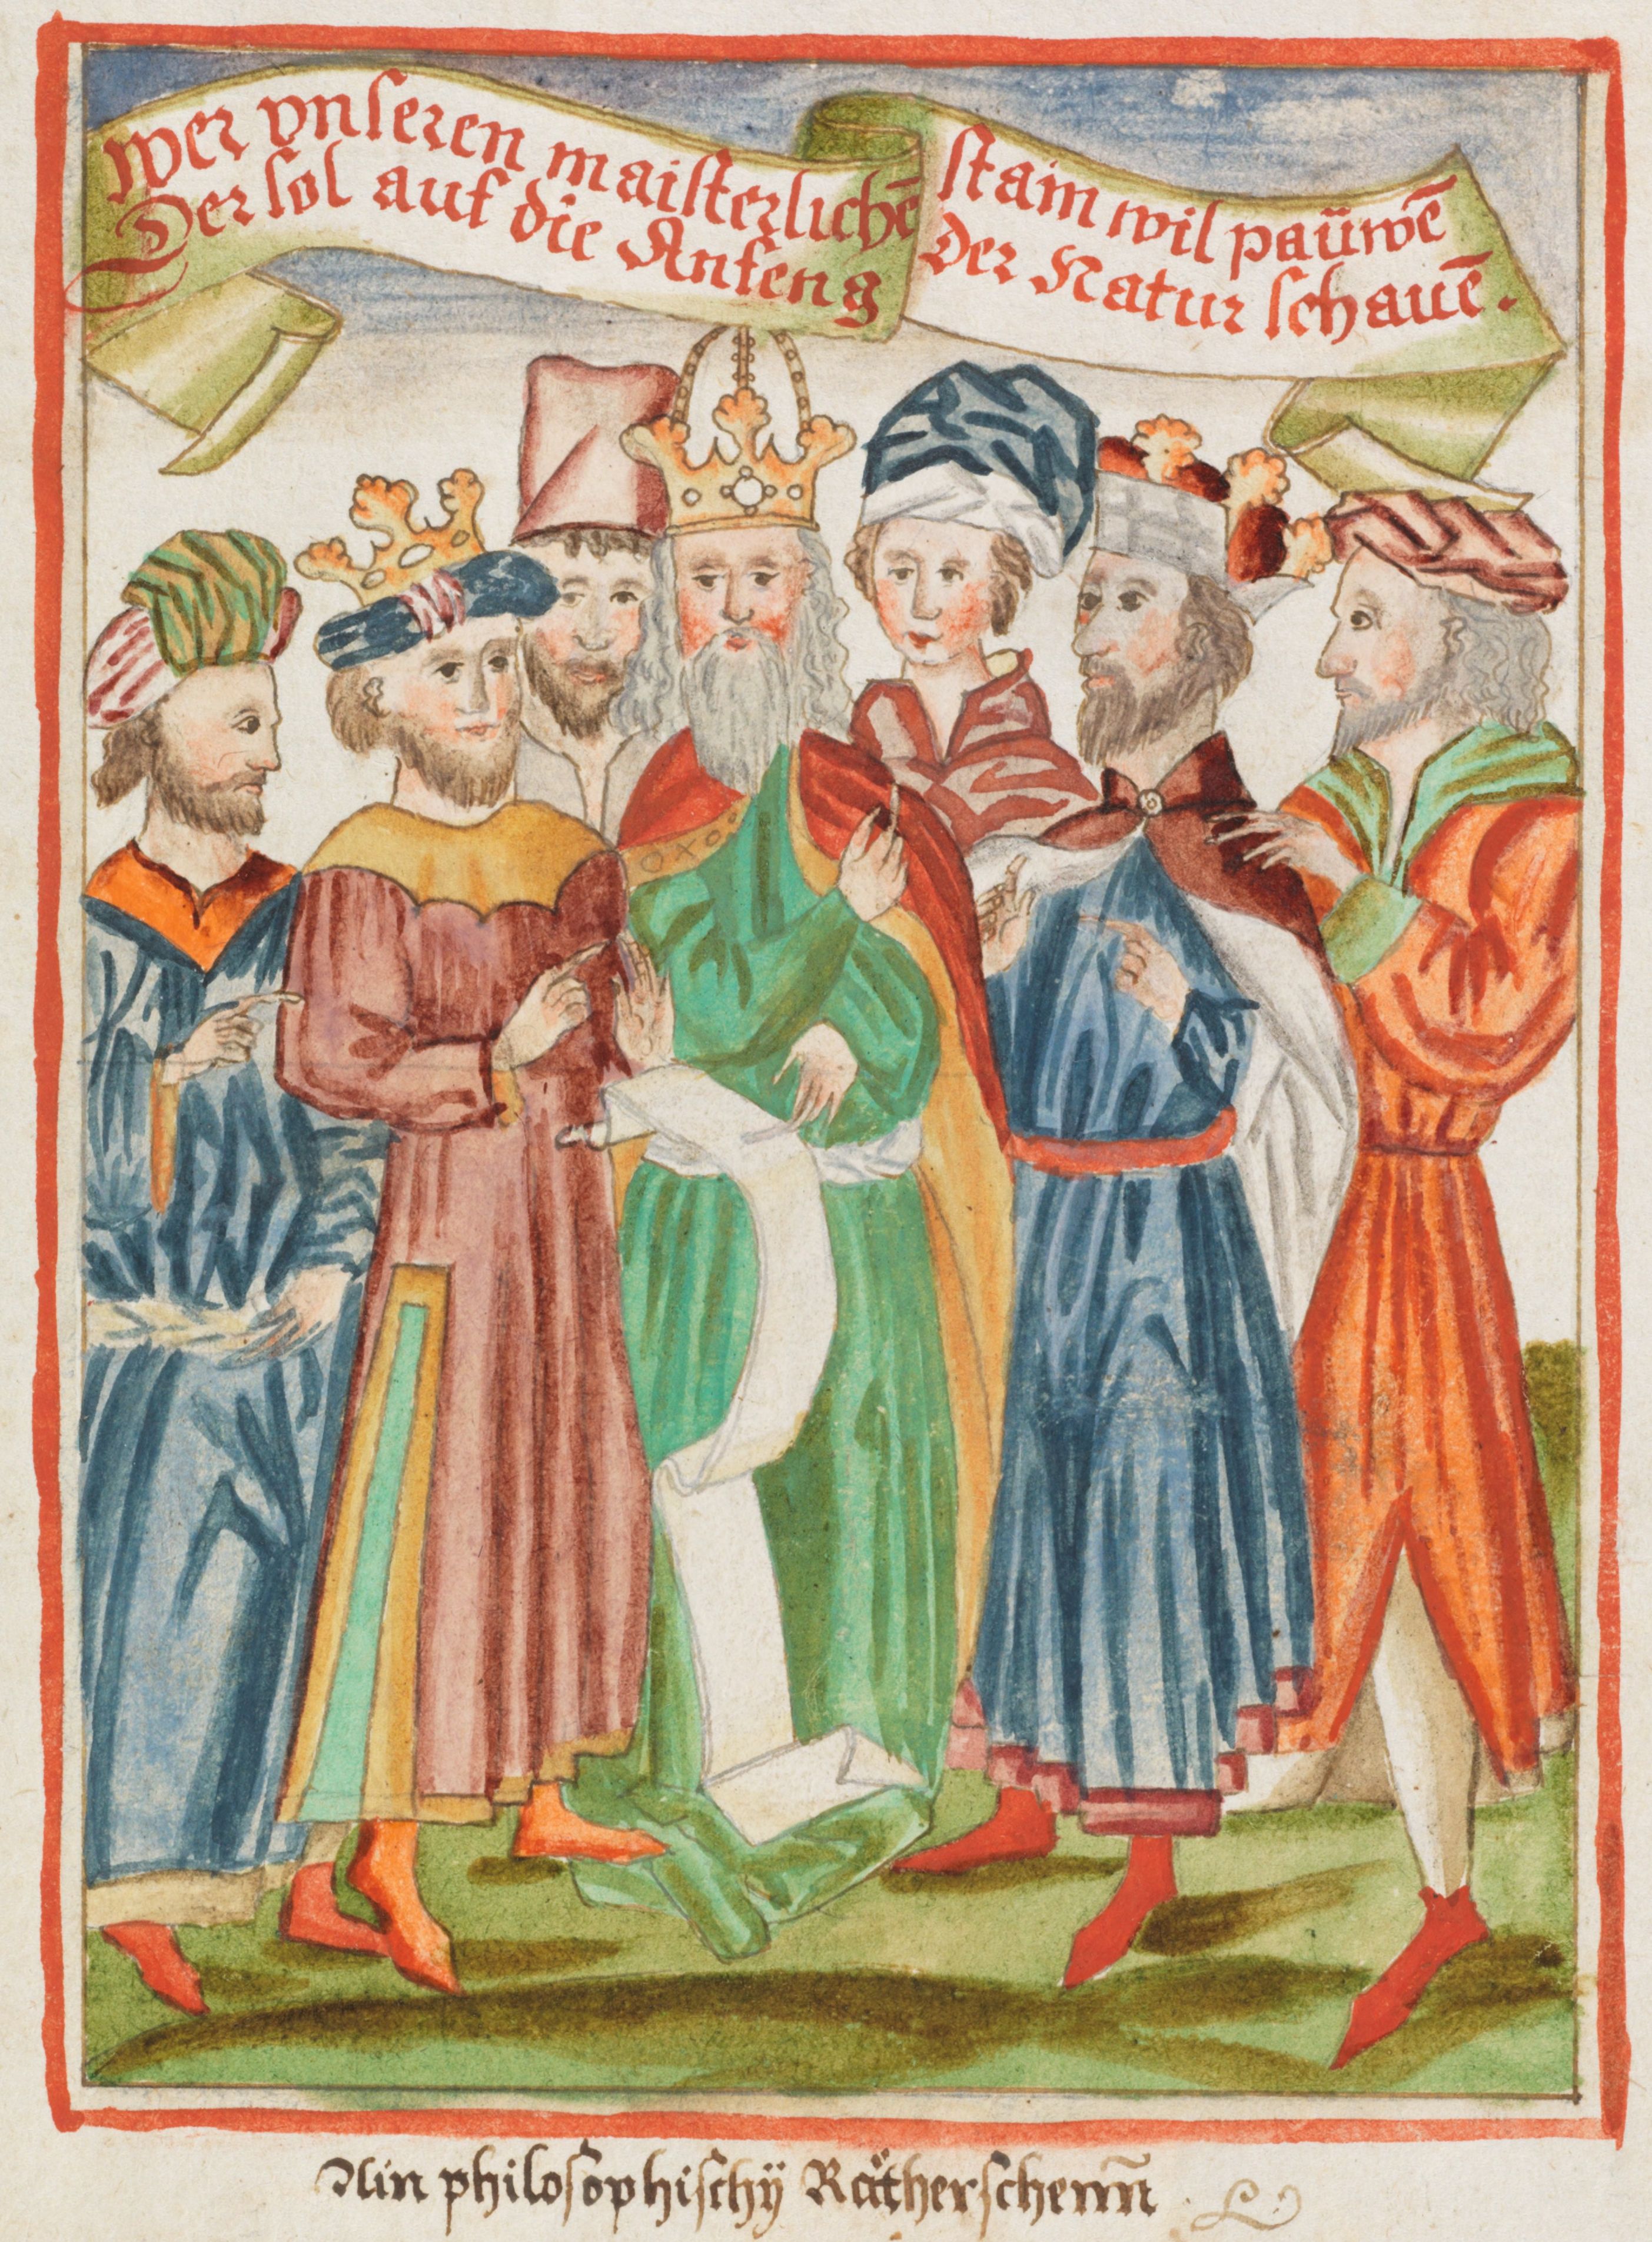 wer vnſeren maiſterlichē ſtain wil paüwē
Der ſol auf die Anfeng der Natur ſchauē.
Ain philoſophiſchÿ